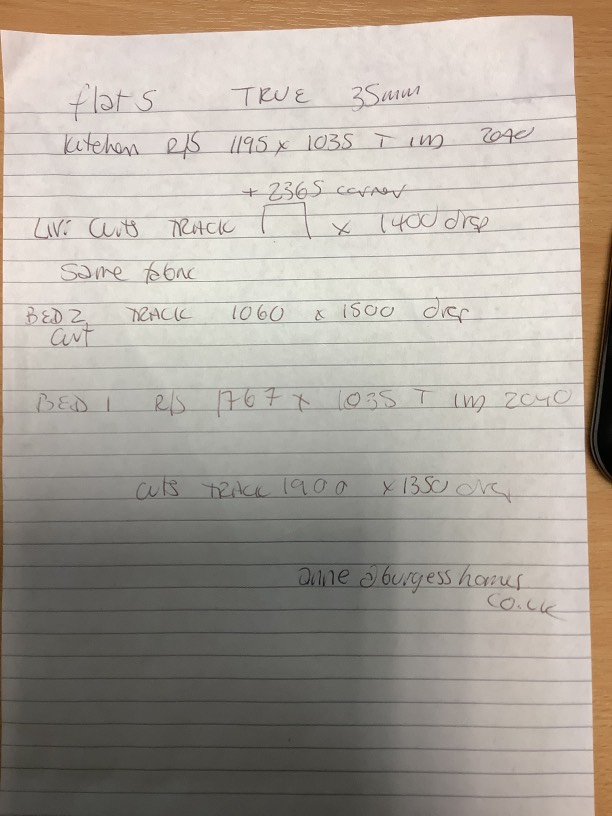 flat 5 TRUE 35mm
Kitchen R/S 1195 x 1035 T IM 2040
+ 2365 corner
LIV: CURTS TRACK x 1400 drop
Same fabric
BED 2 TRACK 1060 x 1500 drop
curt
BED 1 R/S 1767 x 1035 T IM 2040
curts TRACK 1900 x 1350 drop
anne@burgesshomes
co.uk